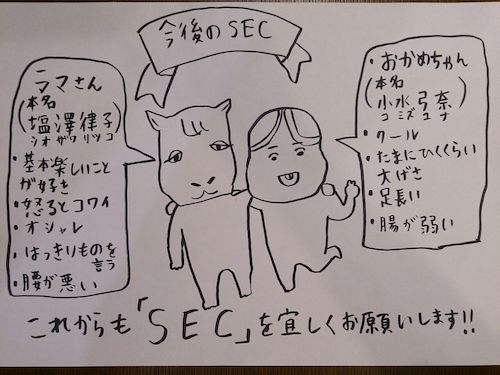 今後のSEC
ラマさん
(本名
塩澤律子)
シオザワリツコ
・基本楽しいこと
が好き
・怒るとコワイ
・オシャレ
・はっきりものを
言う
・腰が悪い
・おかめちゃん
(本名
小水弓奈)
コミズユナ
・クール
・たまにひくくらい
大げさ
・足長い
・腸が弱い
これからも「SEC」を宜しくお願いします!!